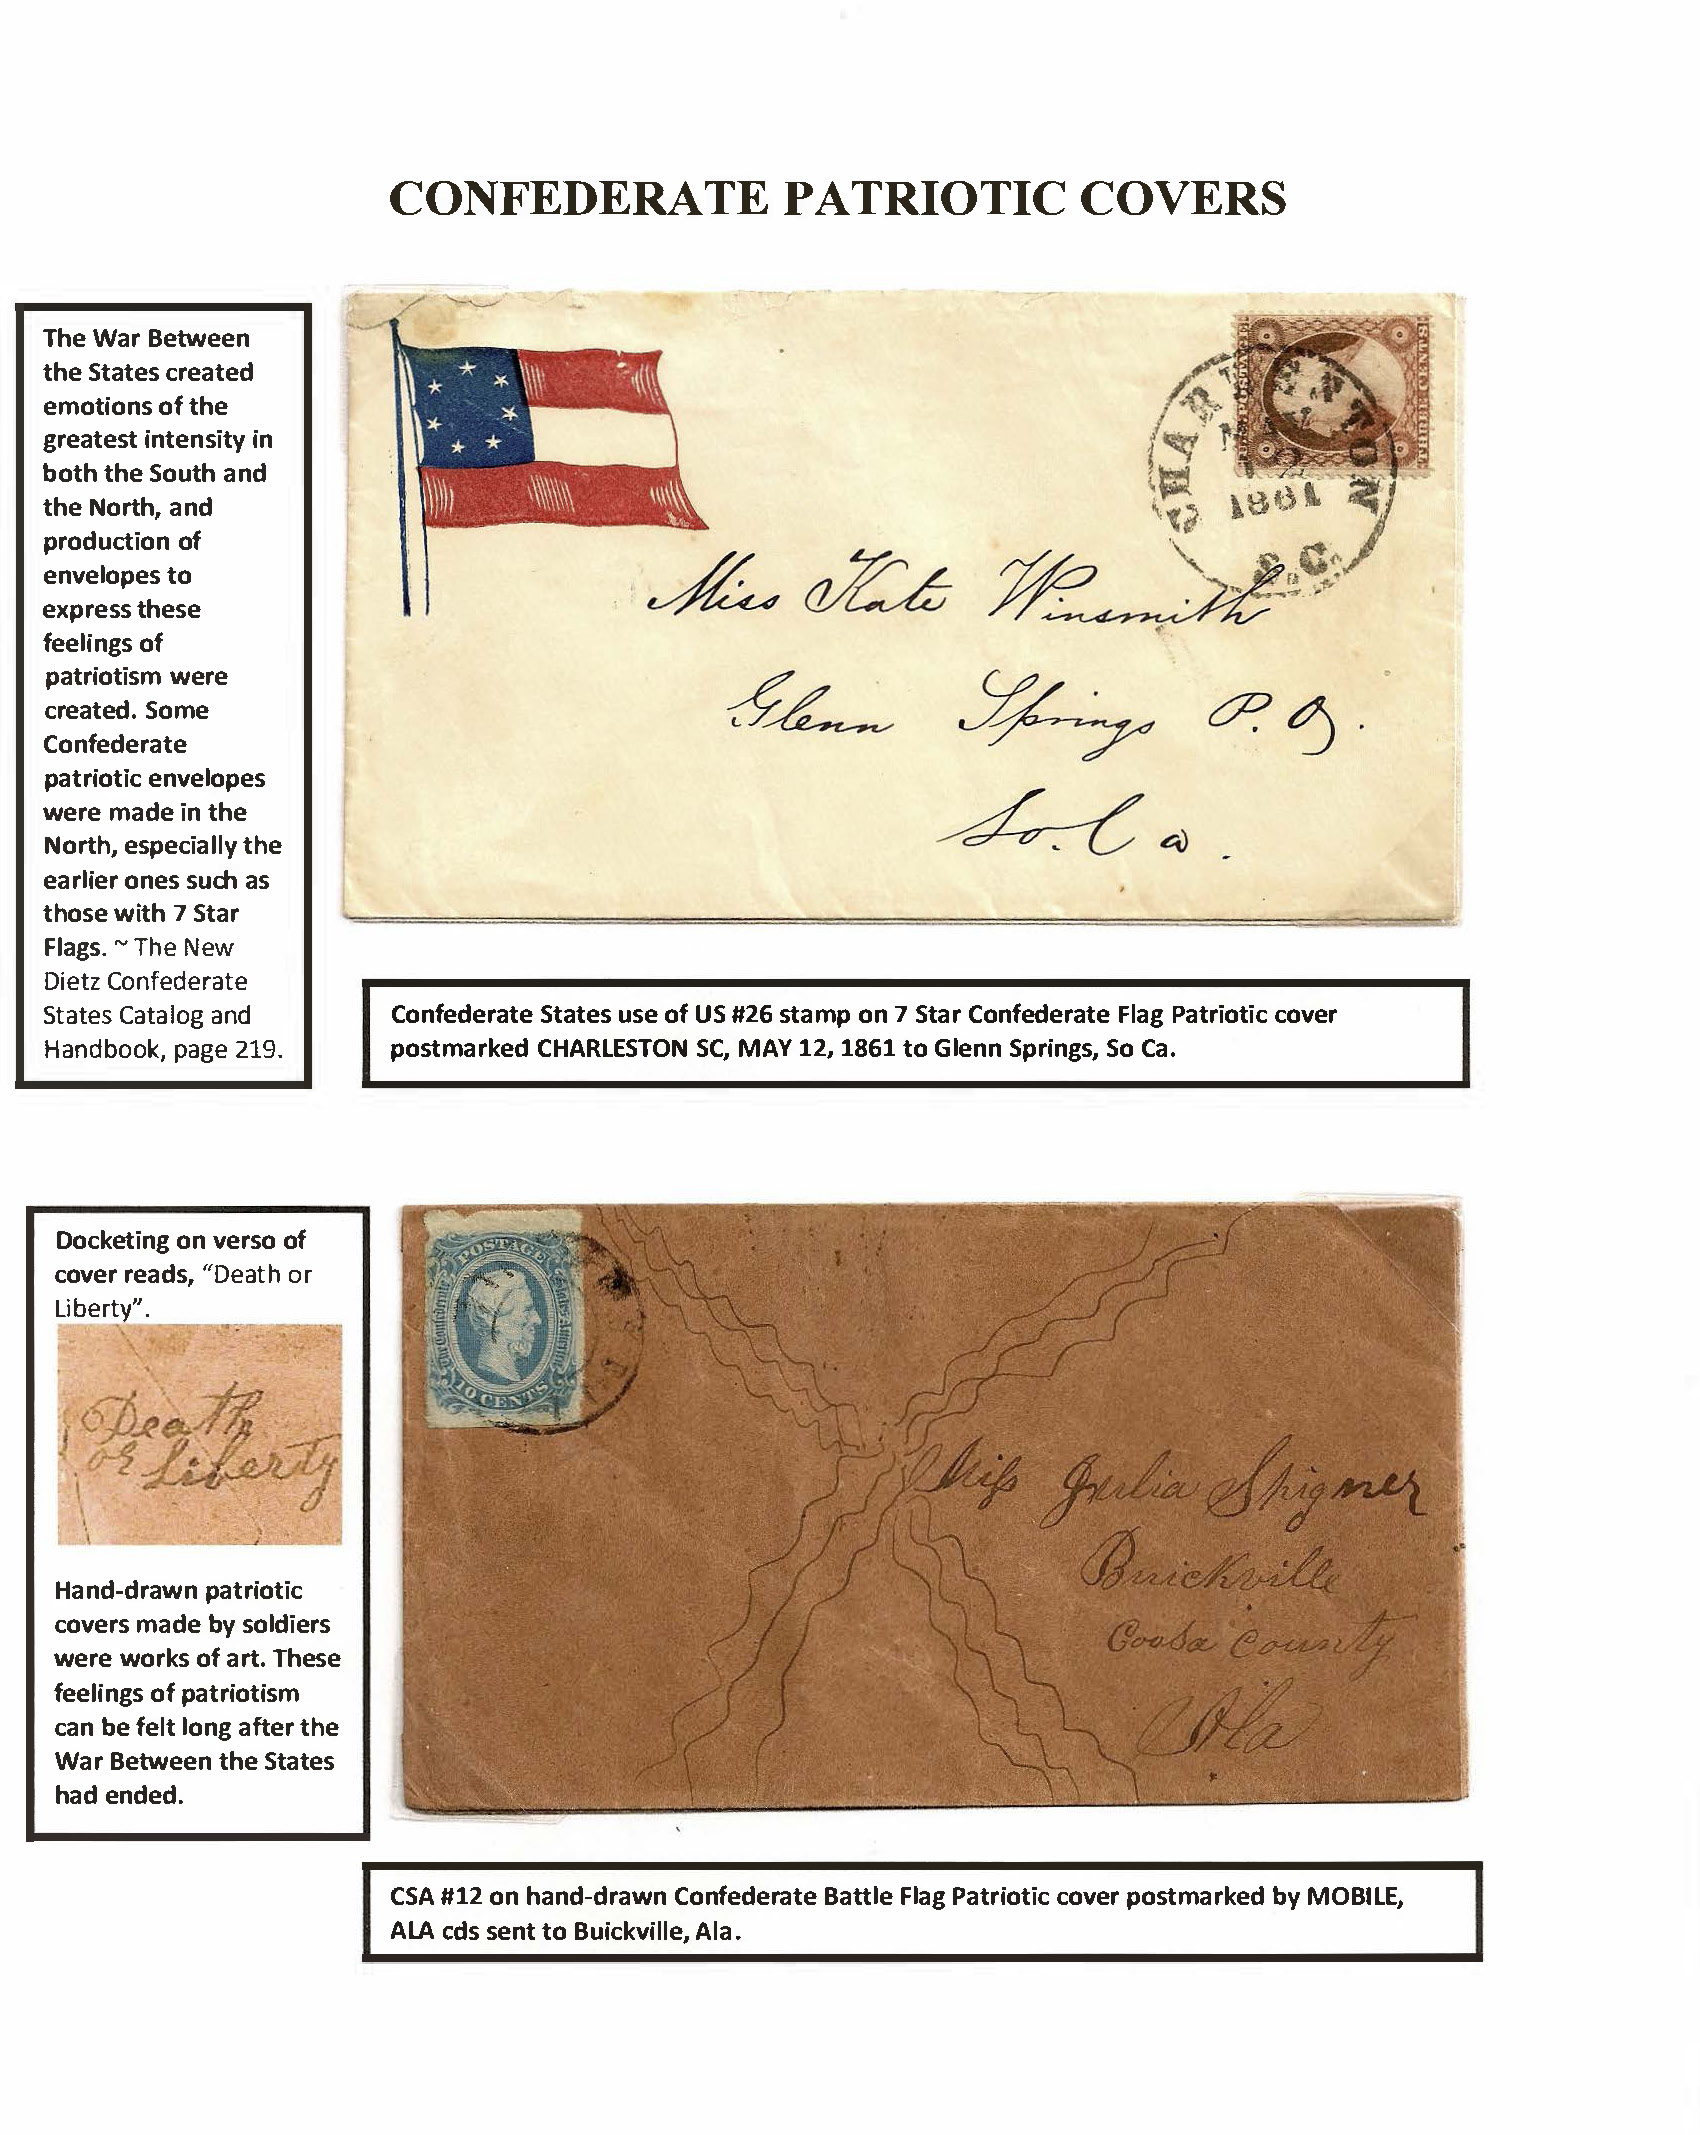 CONFEDERATE PATRIOTIC COVERS
The War Between
the States created
emotions of the
greatest intensity in
both the South and
the North, and
production of
envelopes to
express these
feelings of
patriotism were
created. Some
Confederate
patriotic envelopes
were made in the
North, especially the
earlier ones such as
those with 7 Star
Flags. ~ The New
Dietz Confederate
States Catalog and
Handbook, page 219.
U.S. POSTAGE
THREE CENTS
CHARLESTON
MAY
12
1861
S.C.
Miss Kate Winsmith
Glenn Springs P. O.
So. Ca.
Confederate States use of US #26 stamp on 7 Star Confederate Flag Patriotic cover
postmarked CHARLESTON SC, MAY 12, 1861 to Glenn Springs, So Ca.
Docketing on verso of
cover reads, "Death or
Liberty".
Death
or Liberty
Hand-drawn patriotic
covers made by soldiers
were works of art. These
feelings of patriotism
can be felt long after the
War Between the States
had ended.
POSTAGE
The Confederate States of America
10 CENTS
Miss Julia Spigner
Buickville
Coosa County
Ala
CSA #12 on hand-drawn Confederate Battle Flag Patriotic cover postmarked by MOBILE,
ALA cds sent to Buickville, Ala.